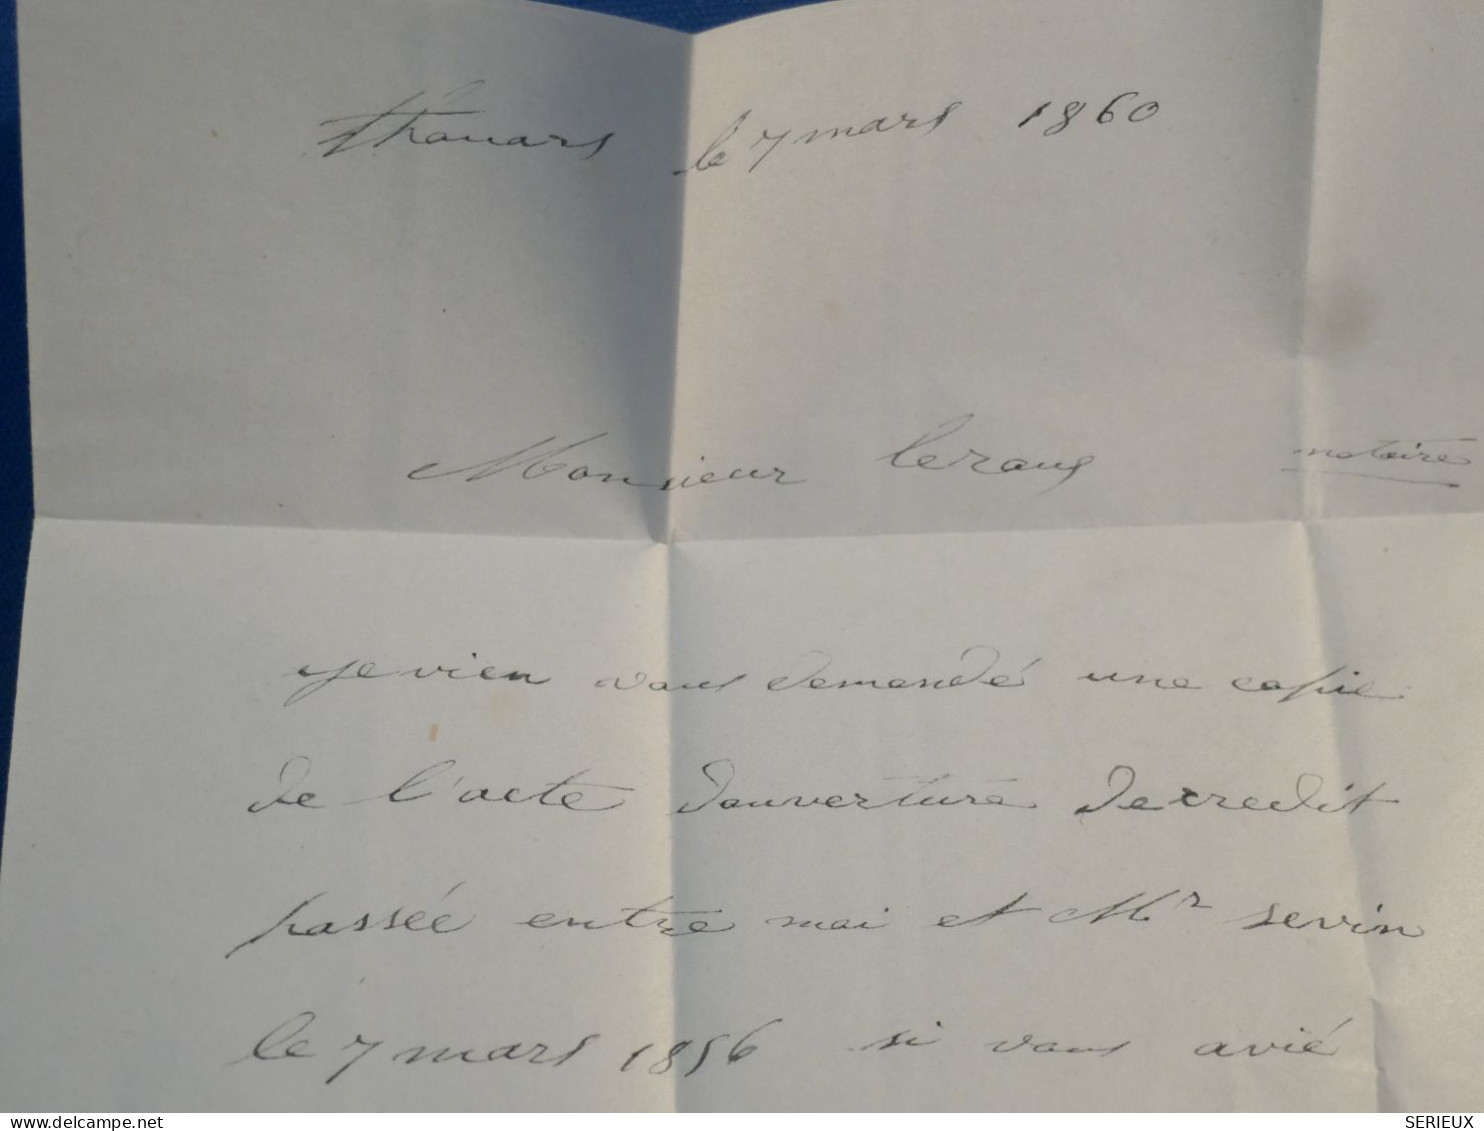 thouars le 7 mars 1860
Monsieur leroux notaire
je vien vous demandé une copie
de l'acte d'ouverture de credit
passée entre moi et Mr sevin
le 7 mars 1856 si vous avié
delcampe.net
SERIEUX